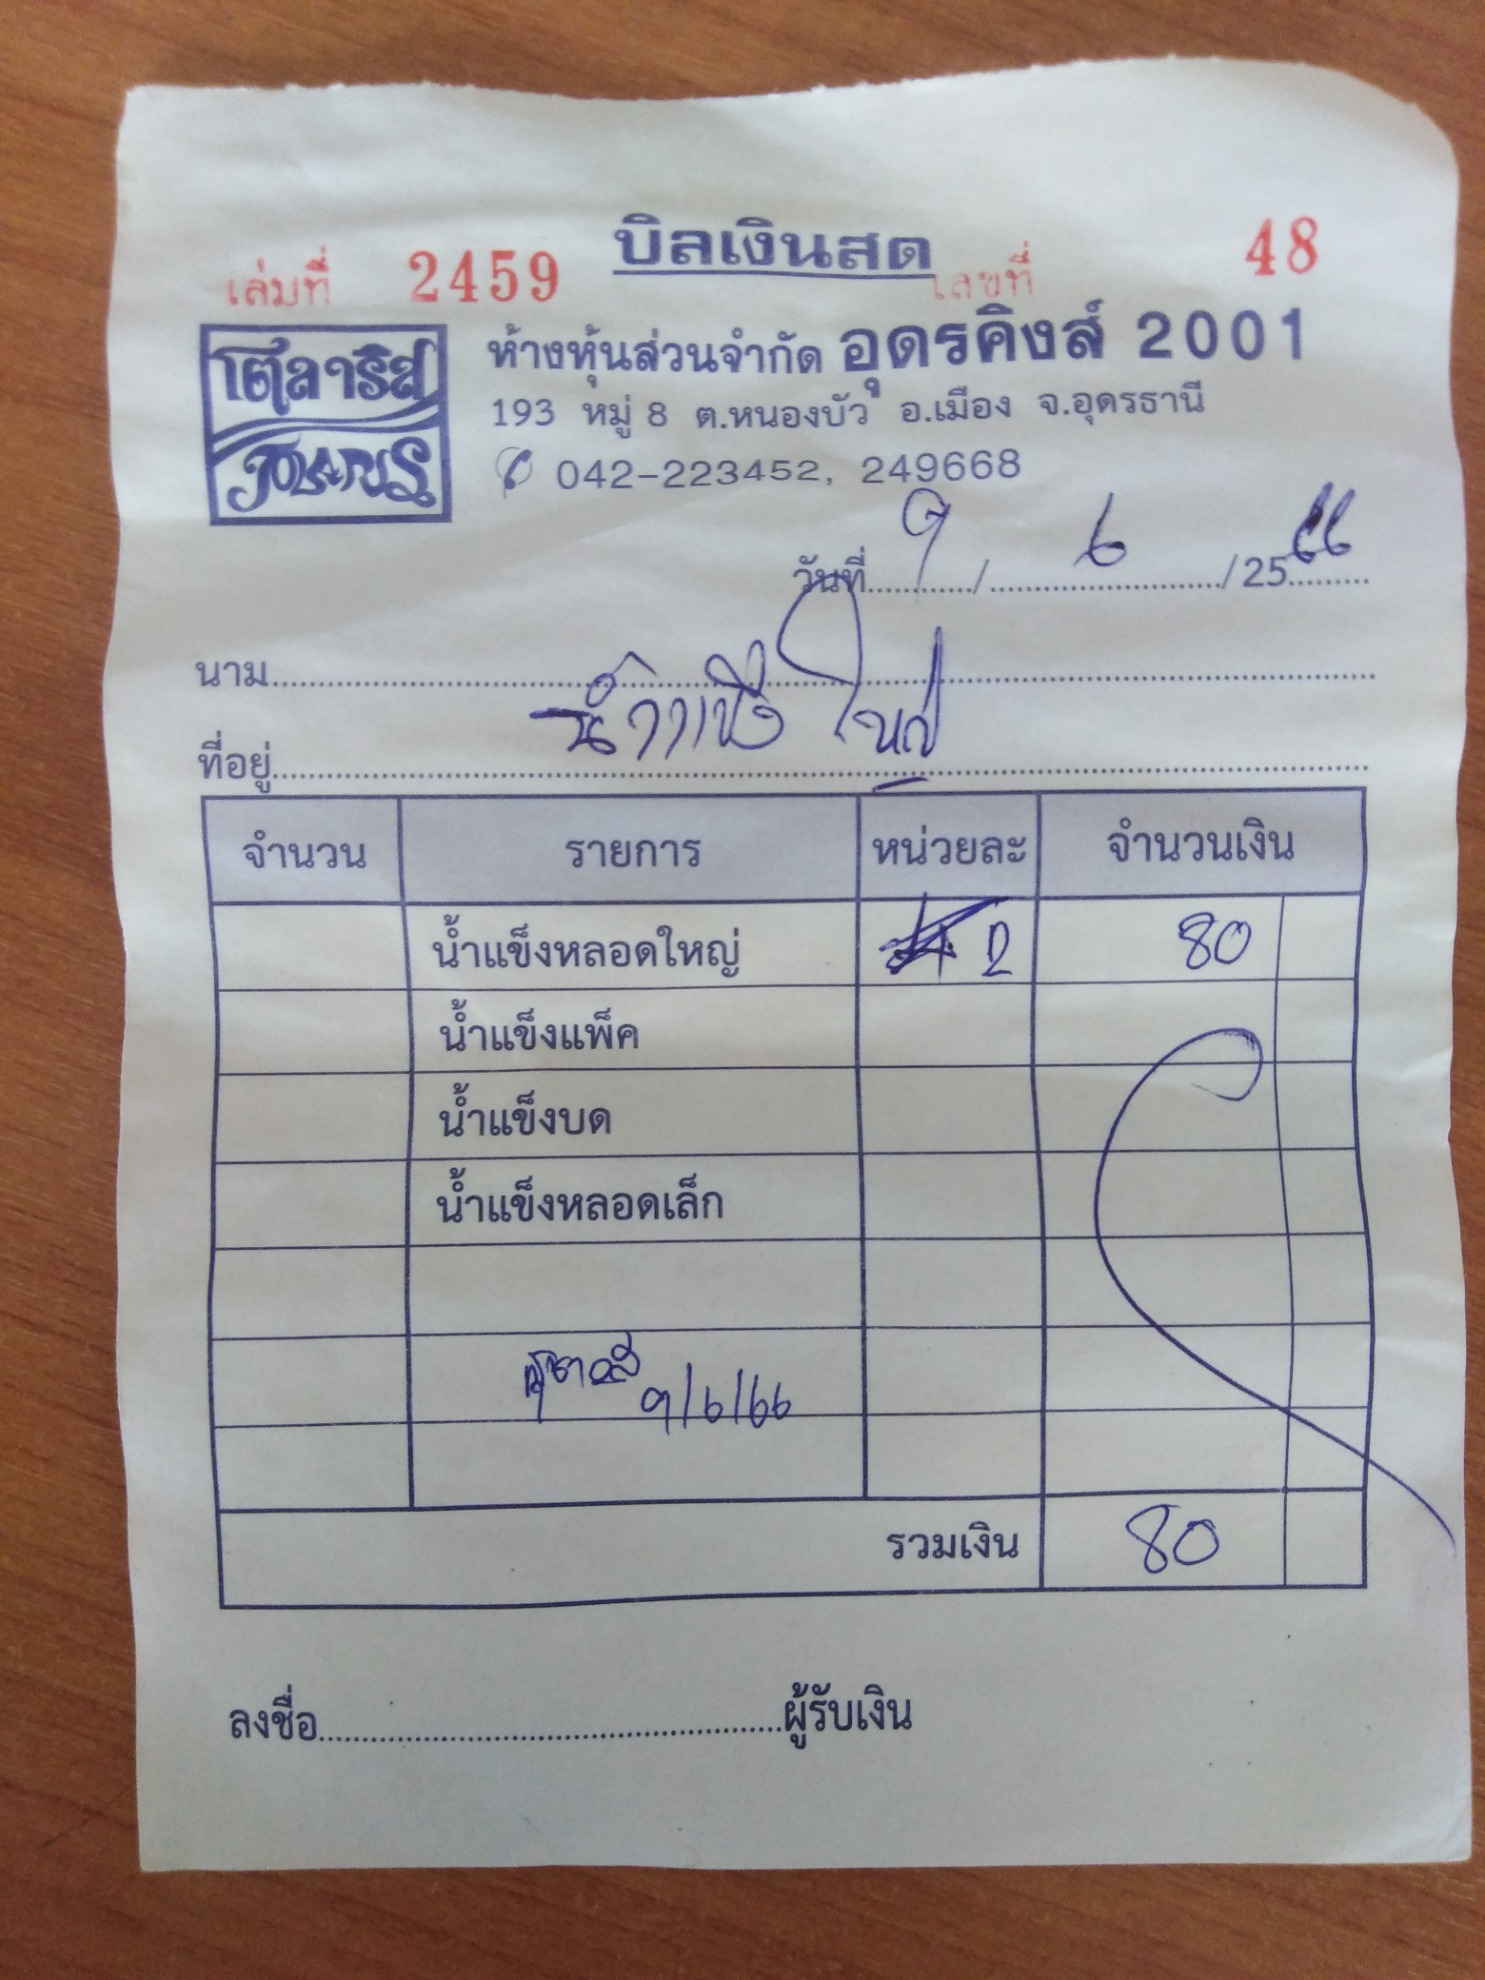 บิลเงินสด
เล่มที่ 2459 เลขที่ 48
โพลาริส
ห้างหุ้นส่วนจำกัด อุดรคิงส์ 2001
193 หมู่ 8 ต.หนองบัว อ.เมือง จ.อุดรธานี
042-223452, 249668
วันที่ 9 / 6 / 25 66
นาม
น้ำแข็ง ใหญ่
ที่อยู่
จำนวน รายการ หน่วยละ จำนวนเงิน
น้ำแข็งหลอดใหญ่ 2 80
น้ำแข็งแพ็ค
น้ำแข็งบด
น้ำแข็งหลอดเล็ก
9/6/66
รวมเงิน 80
ลงชื่อ ผู้รับเงิน